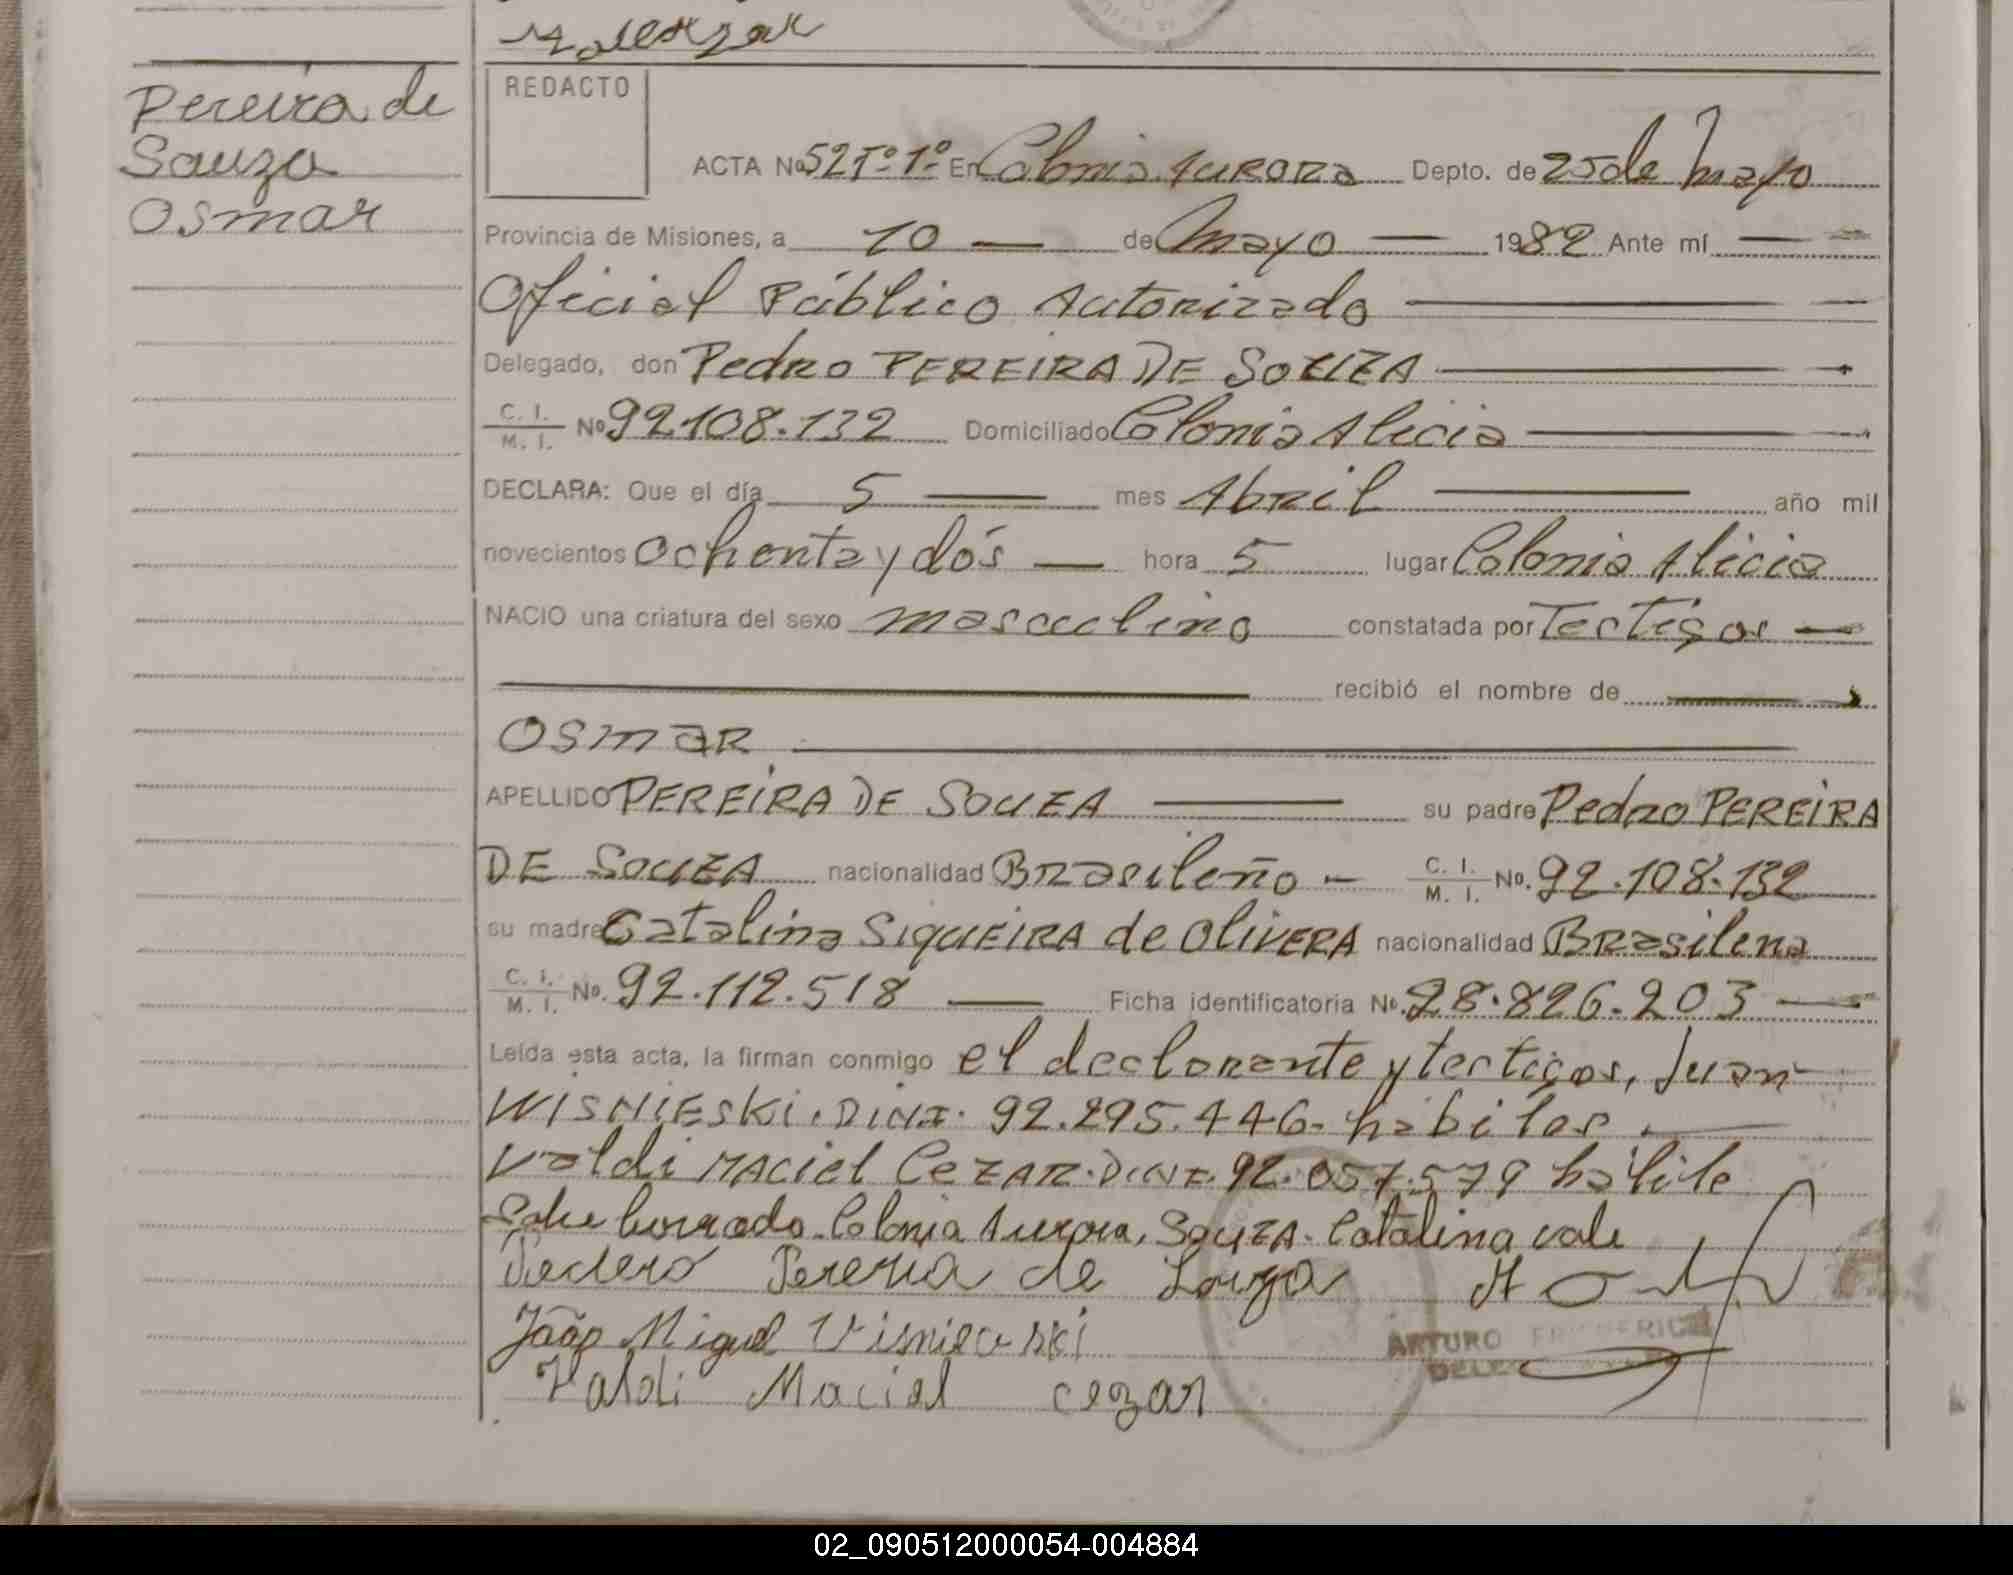 Pereira de
Souza
Osmar
REDACTO
ACTA Nº 52 Tº 1º En Colonia Aurora Depto. de 25 de Mayo
Provincia de Misiones, a 10 — de Mayo — 1982 Ante mí —
Oficial Público Autorizado
Delegado, don Pedro PEREIRA DE SOUZA
C. I. / M. I. Nº 92.108.132 Domiciliado Colonia Alicia
DECLARA: Que el día 5 — mes Abril — año mil
novecientos Ochenta y dós — hora 5 lugar Colonia Alicia
NACIO una criatura del sexo masculino constatada por Tectigos —
recibió el nombre de
OSMAR
APELLIDO PEREIRA DE SOUZA — su padre Pedro PEREIRA
DE SOUZA nacionalidad Brasileño — C. I. / M. I. Nº. 92.108.132
su madre Catalina SIQUEIRA de OLIVERA nacionalidad Brasilena
C. I. / M. I. Nº. 92.112.518 — Ficha identificatoria Nº. 28.826.203 —
Leída esta acta, la firman conmigo el declarante y tectigos, Juan
WISNIESKI. DINI. 92.295.446. habiles.
Valdi MACIEL CEZAR. DINI. 92.057.579 hábile
Sobre borrado. Colonia Aurora, SOUZA. Catalina vale
Pedero Pereria de Souza
João Miguel Visnieski
Valdi Maciel cezar
ARTURO
02_090512000054-004884